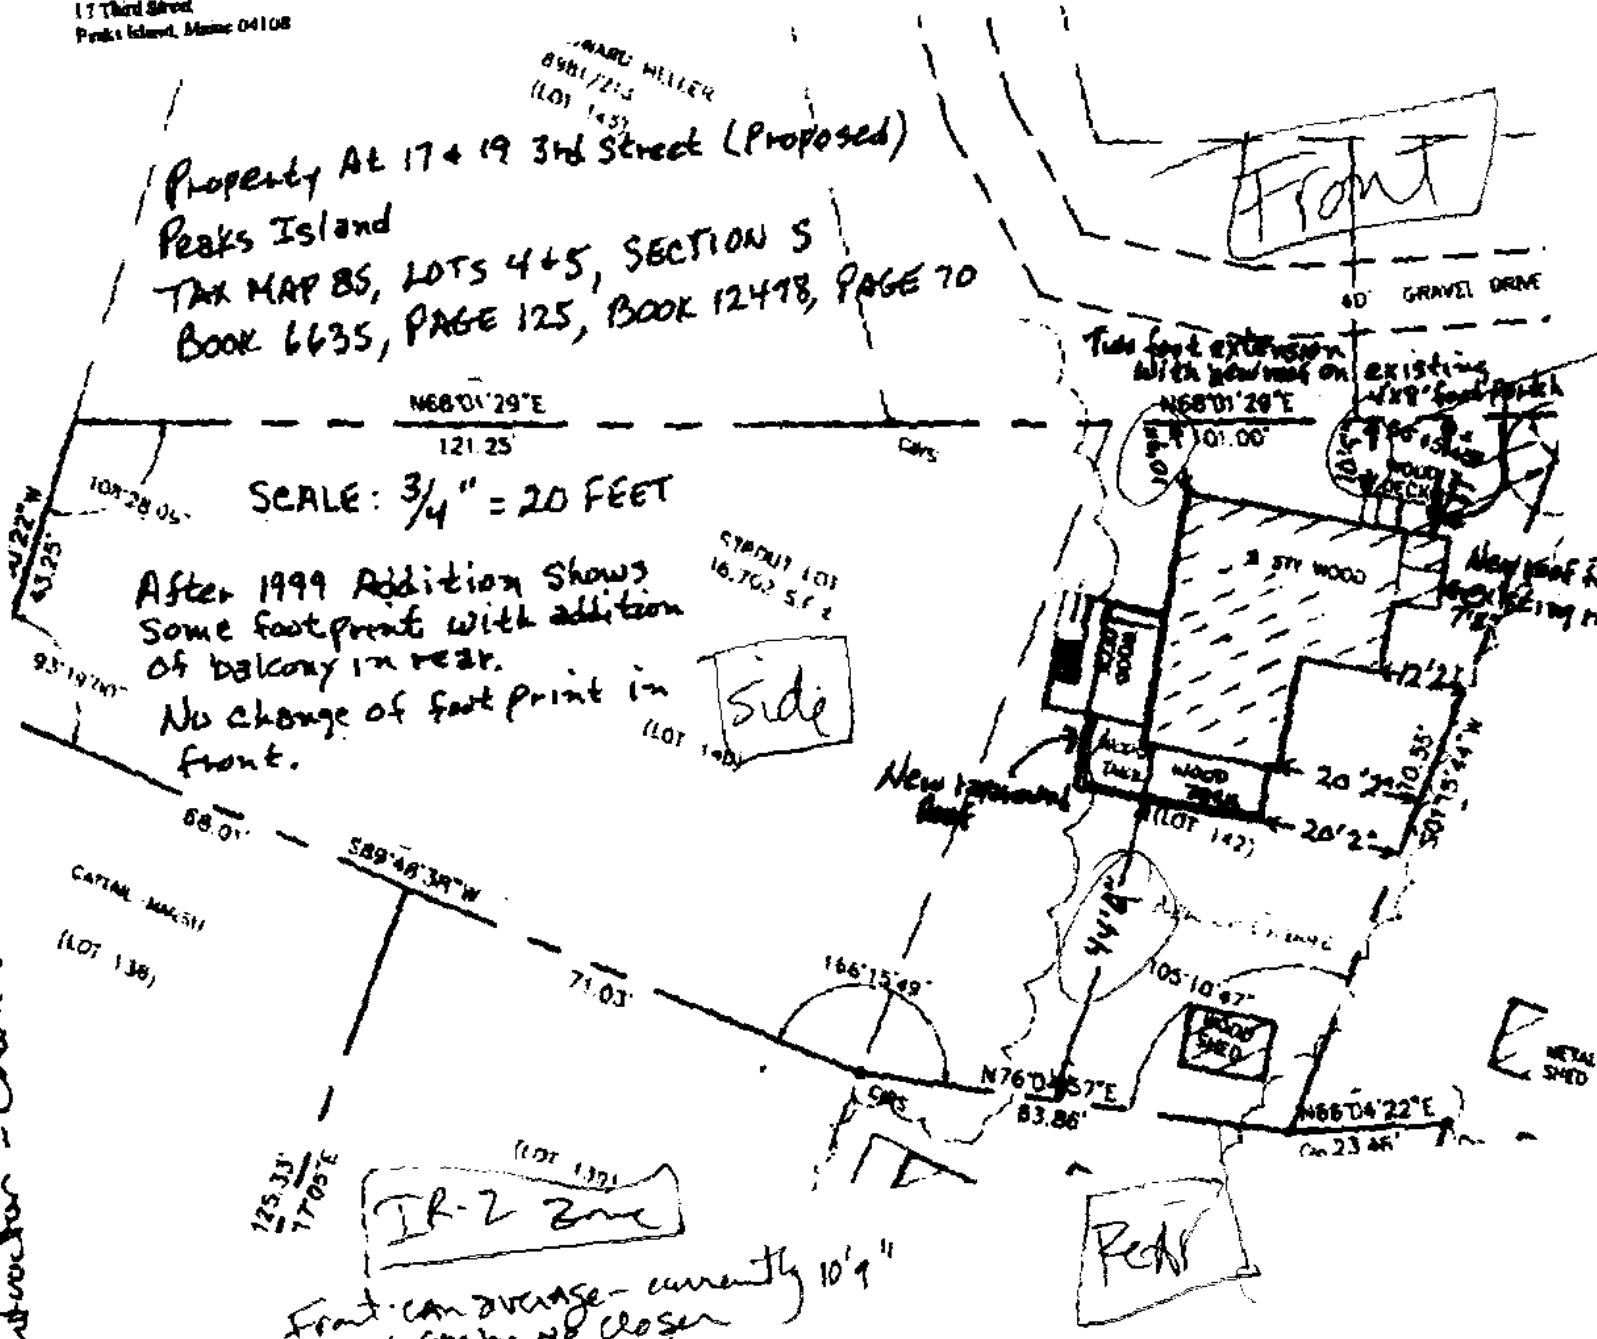 17 Third Street
Peaks Island, Maine 04108
WARD HELLER
8981/213
(LOT 145)
Property At 17 & 19 3rd Street (Proposed)
Peaks Island
TAX MAP 85, LOTS 4+5, SECTION S
BOOK 6635, PAGE 125, BOOK 12478, PAGE 70
Front
40' GRAVEL DRIVE
Two foot extension
with new roof on existing
4'x8' foot Porch
N68°01'29"E
121.25'
N68°01'29"E
101.00'
10'9"
10'5"
WOOD
DECK
108°28'05"
SCALE: 3/4" = 20 FEET
22"W
43.25'
After 1999 Addition Shows
Some footprint with addition
of balcony in rear.
No change of foot print in
front.
STROUT LOT
16,702 S.F.±
2 STY WOOD
New roof
existing
7'8"
WOOD
DECK
12'2"
93°19'20"
Side
(LOT 140)
New
Roof
WOOD
(LOT 142)
20'2"
20'2"
70.55'
S01°15'44"W
68.01'
S89°48'38"W
71.03'
MARSH
(LOT 138)
44'4"
166°15'49"
105°10'47"
WOOD
SHED
METAL
SHED
N76°04'57"E
83.86'
N66°04'22"E
23.46'
125.33'
17°05'E
(LOT 139)
IR-2 Zone
Rear
Front can average - currently 10'9"
no closer